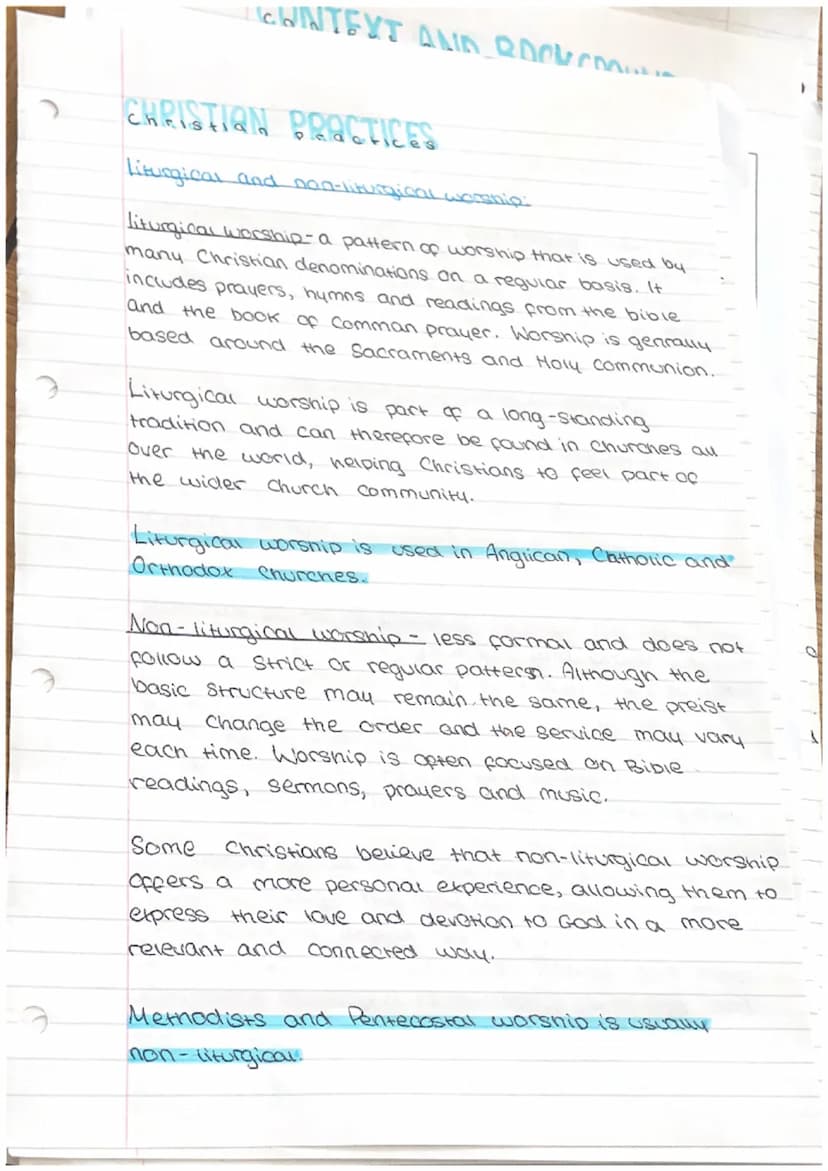 CONTEXT AND BACKGROUND
CHRISTIAN PRACTICES
Christian practices
Liturgical and non-liturgical worship:
liturgical worship - a pattern of worship that is used by
many Christian denominations on a regular basis. It
includes prayers, hymns and readings from the bible
and the book of comman prayer. Worship is genrally
based around the Sacraments and Holy communion.
Liturgical worship is part of a long-standing
tradition and can therefore be found in churches all
over the world, helping Christians to feel part of
the wider church community.
Liturgical worship is used in Anglican, Catholic and
Orthodox churches.
Non-liturgical worship - less formal and does not
follow a strict or regular pattern. Although the
basic structure may remain the same, the preist
may change the order and the service may vary
each time. Worship is often focused on Bible
readings, sermons, prayers and music.
Some Christians believe that non-liturgical worship
offers a more personal experience, allowing them to
express their love and devotion to God in a more
relevant and connected way.
Methodists and Pentecostal worship is usually
non-liturgical.